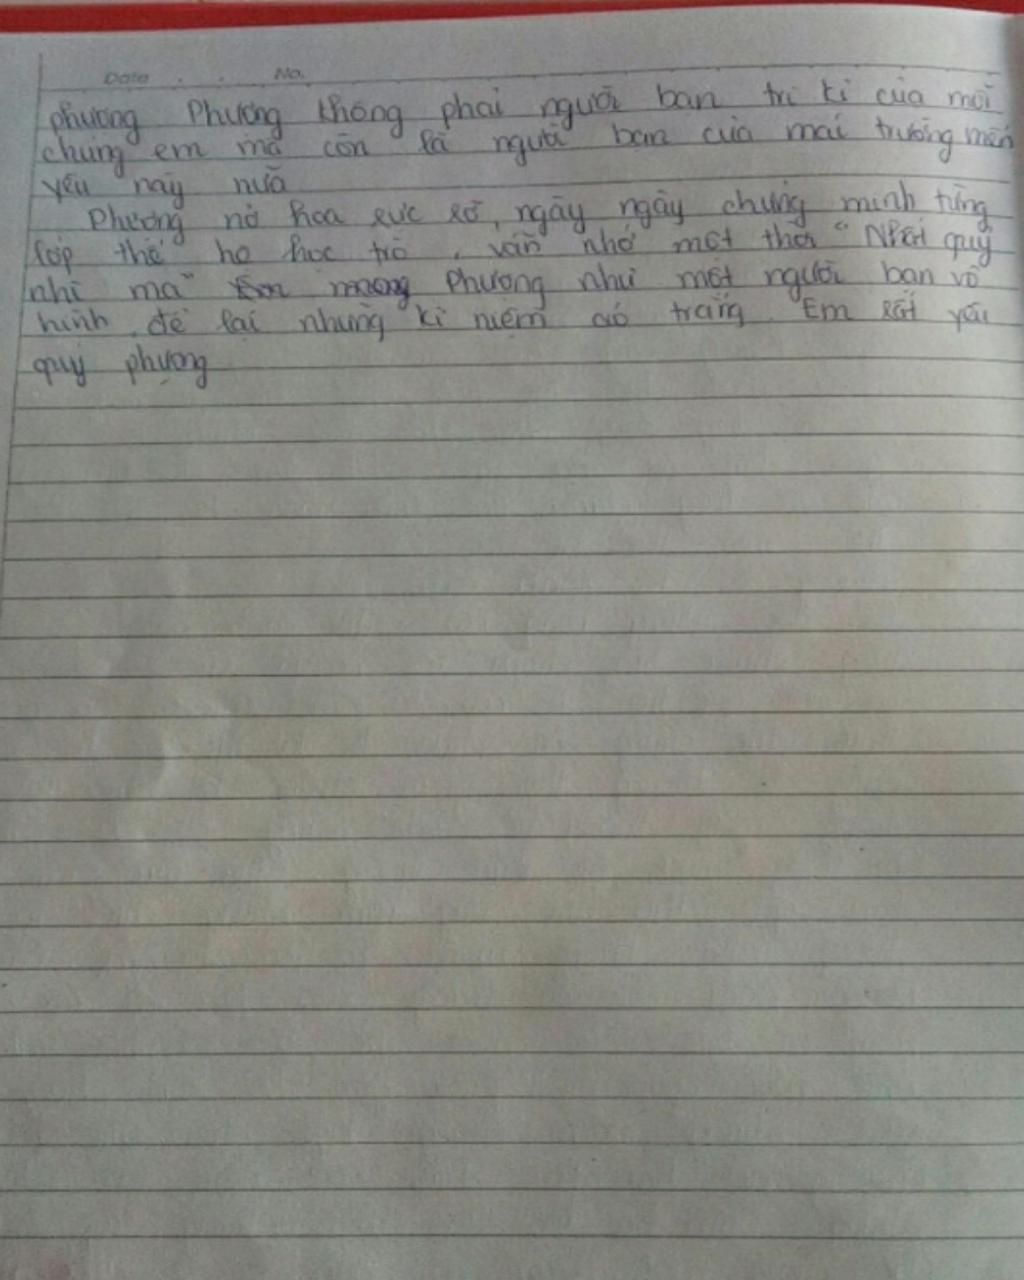 Date . . No.
phượng Phượng không phải người bạn tri kỉ của mỗi
chúng em mà còn là người bạn của mái trường mến
yêu này nữa
Phượng nở hoa rực rỡ, ngày ngày chứng minh từng
lớp thế hệ học trò, vẫn nhớ một thời "Nhất quỷ
nhì ma" Phượng như một người bạn vô
hình để lại những kỉ niệm áo trắng. Em rất yêu
quý phượng